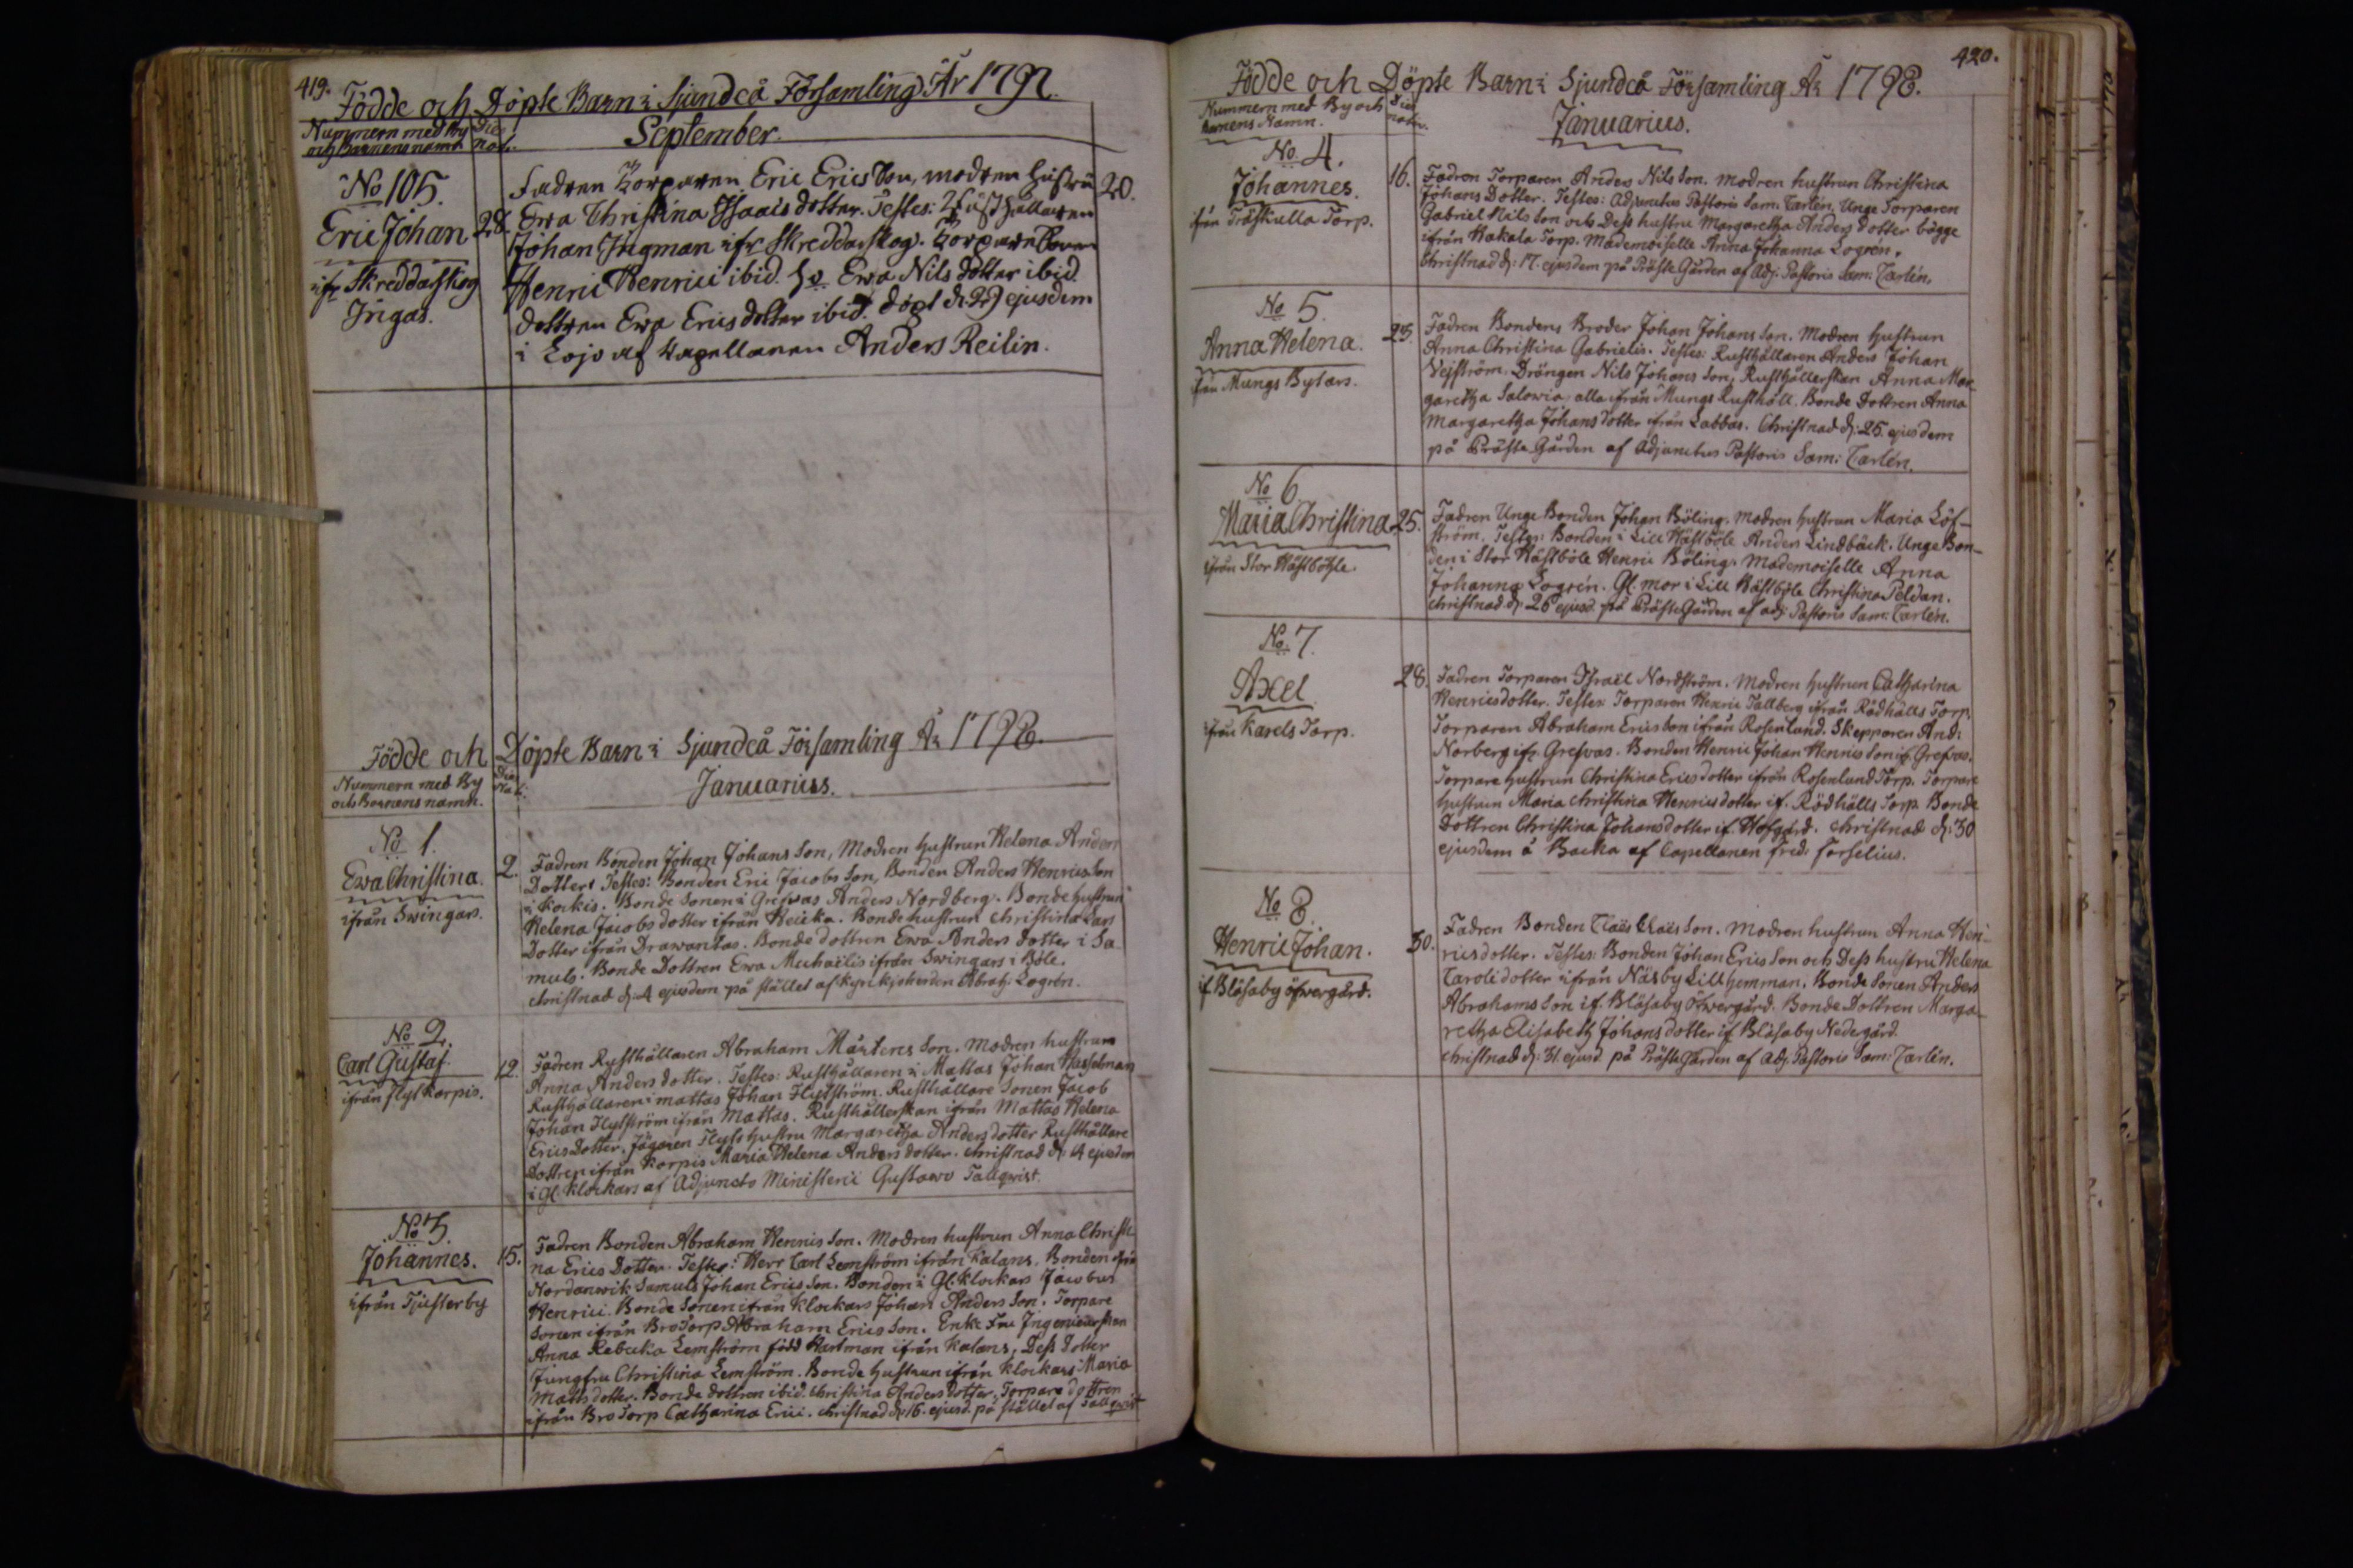 419.
Födde och Döpte Barn i Sjundeå Församling År 1797.
Nummern med By
och Barnens namn
Dies
nat.
September.
No 105.
Eric Johan
ifr Skreddarskog
Ingas.
28.
Fadren Torparen Eric Ericsson, modren hustru
20.
Ewa Christina Isaacs dotter. Testes: Rusthållaren
Johan Ingman ifr Skreddarskog. Torparesonen
Henric Henrici ibid. Ho Ewa Nils dotter ibid
dottren Ewa Erics dotter ibid. döpt d. 29 ejusdem
i Lojo af Kapellanen Anders Reilin.
Födde och Döpte Barn i Sjundeå Församling År 1798.
Nummern med By
och Barnens namn.
Dies
Nat.
Januarius.
No 1.
Ewa Christina.
ifrån Swingars.
2.
Fadren Bonden Johan Johans Son, Modren hustrun Helena Anders
Dotter. Testes: Bonden Eric Jacobs Son, Bonden Anders Henrics Son
i Kockis. Bonde Sonen i Grefvas Anders Nordberg. Bonde hustrun
Helena Jacobs dotter ifrån Heicka. Bonde hustrun Christina Lars
Dotter ifrån Drawantas. Bonde dottren Ewa Anders Dotter i Sa-
muls. Bonde Dottren Ewa Michaelis ifrån Swingars i Böle.
Christnad d: 4 ejusdem på stället af Kyrckjoherden Abrah. Logrén.
No 2.
Carl Gustaf.
ifrån flyt Karpis.
12.
Fadren Rusthållaren Abraham Mårtens Son. Modren hustrun
Anna Anders dotter. Testes: Rusthållaren i Mattas Johan Hasselman
Rusthållaren i mattas Johan Flytström. Rusthållare Sonen Jacob
Johan Flytström ifrån Mattas. Rusthållerskan ifrån Mattas Helena
Erics Dotter. Jägaren Flyts hustru Margaretha Anders dotter Rusthållare
Dottren ifrån Korpis Maria Helena Anders dotter. Christnad d: 14 ejusdem
i Gl. Klockars af Adjuncto Ministerii Gustawo Tallqwist.
No 3.
Johannes.
ifrån Tjusterby
15.
Fadren Bonden Abraham Henrics Son. Modren hustrun Anna Christi-
na Erics Dotter. Testes: Herr Carl Lemström ifrån Kalans. Bonden ifrån
Nordanwik Samuels Johan Erics Son. Bonden i Gl. Klockars Jacobus
Henrici. Bonde Sonen ifrån Klockars Johan Anders Son. Torpare
Sonen ifrån Bro Torp Abraham Erics Son. Enke Fru Ingenieurskan
Anna Rebecka Lemström född Hartman ifrån Kalans, Dess Dotter
Jungfru Christina Lemström. Bonde hustrun ifrån Klockars Maria
Matts dotter. Bonde dottren ibid. Christina Anders Dotter. Torpare dottren
ifrån Bro Torp Catharina Erici. Christnad d: 16. ejusd. på stället af Tallqwist
420.
Födde och Döpte Barn i Sjundeå Församling År 1798.
Nummern med By och
Barnens Namn.
Dies
nativ.
Januarius.
No. 4.
Johannes.
från Träskulla Torp.
16.
Fadren Torparen Anders Nils Son. Modren hustrun Christina
Johans Dotter. Testes: Adjunctus Pastoris Sam: Carlén. Unge Torparen
Gabriel Nils Son och Dess hustru Margaretha Anders dotter bägge
ifrån Hakala Torp. Mademoiselle Anna Johanna Logrén.
Christnad d: 17. ejusdem på Präste Gården af Adj: Pastoris Sam: Carlén.
No 5.
Anna Helena.
från Mungs Bylars.
25.
Fadren Bondens Broder Johan Johans Son. Modren hustrun
Anna Christina Gabrielis. Testes: Rusthållaren Anders Johan
Vejström. Drängen Nils Johans Son, Rusthållerskan Anna Mar-
garetha Salowia, alla ifrån Mungs Rusthåll. Bonde Dottren Anna
Margaretha Johans dotter ifrån Labbas. Christnad d: 25. ejusdem
på Präste Gården af Adjunctus Pastoris Sam: Carlén.
No 6.
Maria Christina
ifrån Stor Hästböhle.
25.
Fadren Unge Bonden Johan Böling. Modren hustrun Maria Löf-
ström. Testes: Bonden i Lill Hästböle Anders Lindbäck. Unge Bon-
den i Stor Hästböle Henric Böling. Mademoiselle Anna
Johanna Logrén. Gl. mor i Lill Hästböle Christina Peldan.
Christnad d: 26 ejusd. på Präste Gården af adj: Pastoris Sam: Carlén.
No. 7.
Axel
ifrån Karels Torp.
28.
Fadren Torparen Israël Nordström. Modren hustrun Catharina
Henricsdotter. Testes: Torparen Henric Tallberg ifrån Rödhälls Torp.
Torparen Abraham Erics Son ifrån Rosenlund. Skepparen And:
Norberg ifr Grefvas. Bonden Henric Johan Henrics Son if. Grefvas.
Torpare hustrun Christina Erics dotter ifrån Rosenlund Torp. Torpare
hustrun Maria Christina Henrics dotter if. Rödhälls Torp Bonde
Dottren Christina Johansdotter if. Hofgård. Christnad d: 30
ejusdem å Backa af Capellanen Fred: Forselius.
No 8.
Henric Johan.
if Blåsaby öfwergård.
30.
Fadren Bonden Claës Claës Son. Modren hustrun Anna Hen-
ricsdotter. Testes: Bonden Johan Erics Son och Dess hustru Helena
Caroli dotter ifrån Näsby Lill hemman. Bonde Sonen Anders
Abrahams Son if. Blåsaby Öfwergård. Bonde Dottren Marga-
retha Elisabeth Johans dotter if Blåsaby Nedegård.
Christnad d: 31. ejusd på Präste Gården af Adj: Pastoris Sam: Carlén.